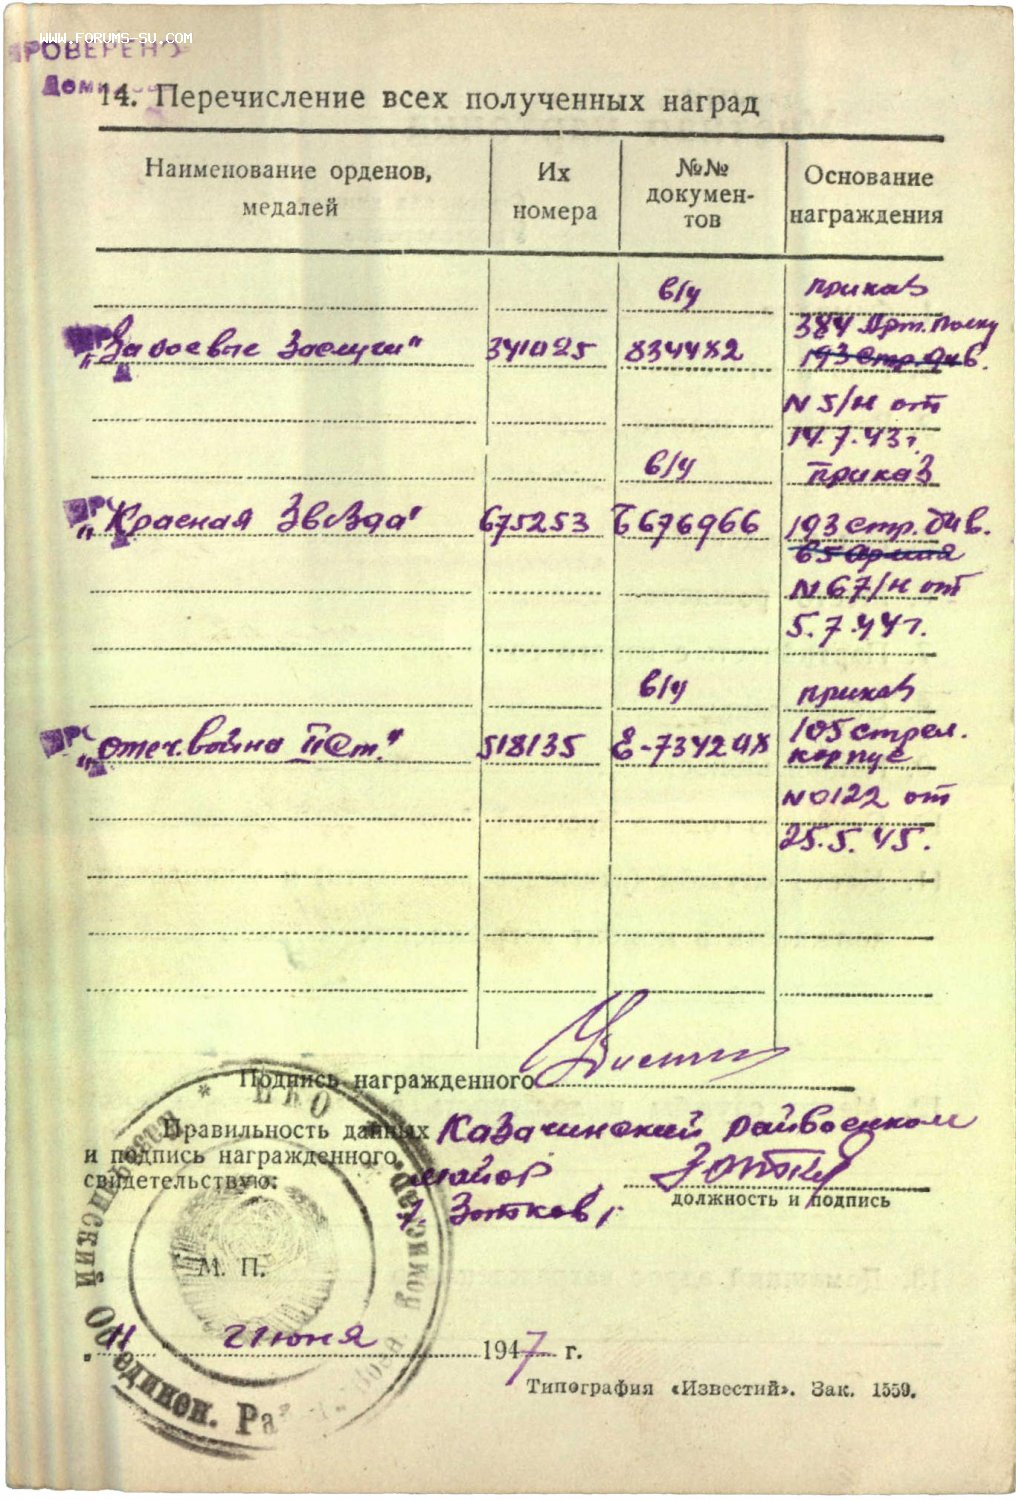 WWW.FORUMS-SU.COM
ПРОВЕРЕНО
14. Перечисление всех полученных наград
Наименование орденов, медалей
Их номера
№№ докумен-тов
Основание награждения
в/у приказ
384 Арт. полку
"За боевые Заслуги" 341025 834482 193 Стр. див.
N 5/н от
14.7.43 г.
в/у приказ
"Красная Звезда" 675253 Б676966 193 стр. див.
65 армия
N 67/н от
5.7.44 г.
в/у приказ
105 стрел.
"Отеч. война II Ст." 518135 Е-734298 корпус
N 0122 от
25.5.45.
Подпись награжденного
Правильность данных Казачинский райвоенком
и подпись награжденного майор
свидетельствую:
должность и подпись
Зотков
М. П.
"11" июня 1947 г.
Типография «Известий». Зак. 1559.